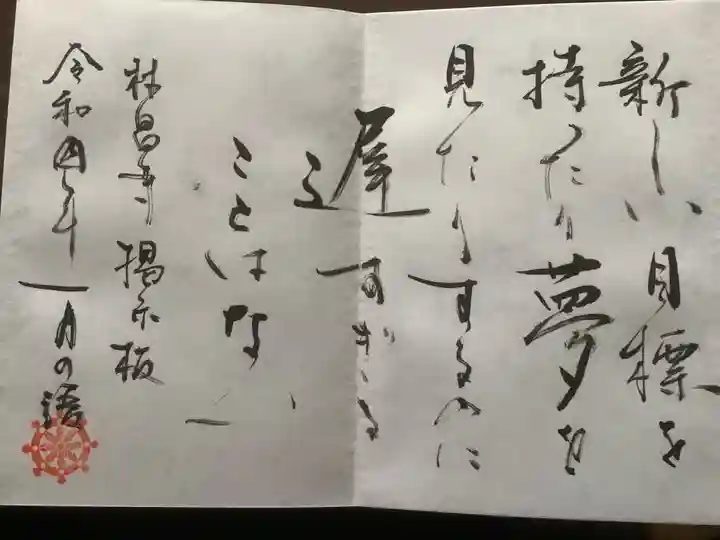 新しい目標を
持ったり夢を
見たりするのに
遅すぎる
ことはない
林昌寺掲示板
令和四年一月の語